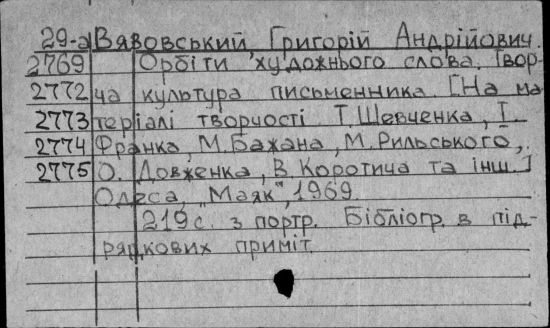 29-а Вязовський, Григорій Андрійович.
2769 Орбіти художнього слова. Твор-
2772 ча культура письменника. [На ма
2773 теріалі творчості Т. Шевченка, І.
2774 Франка, М. Бажана, М. Рильського,
2775 О. Довженка, В. Коротича та інш.]
Одеса, „Маяк", 1969
219 с. з портр. Бібліогр. в під-
рядкових приміт.